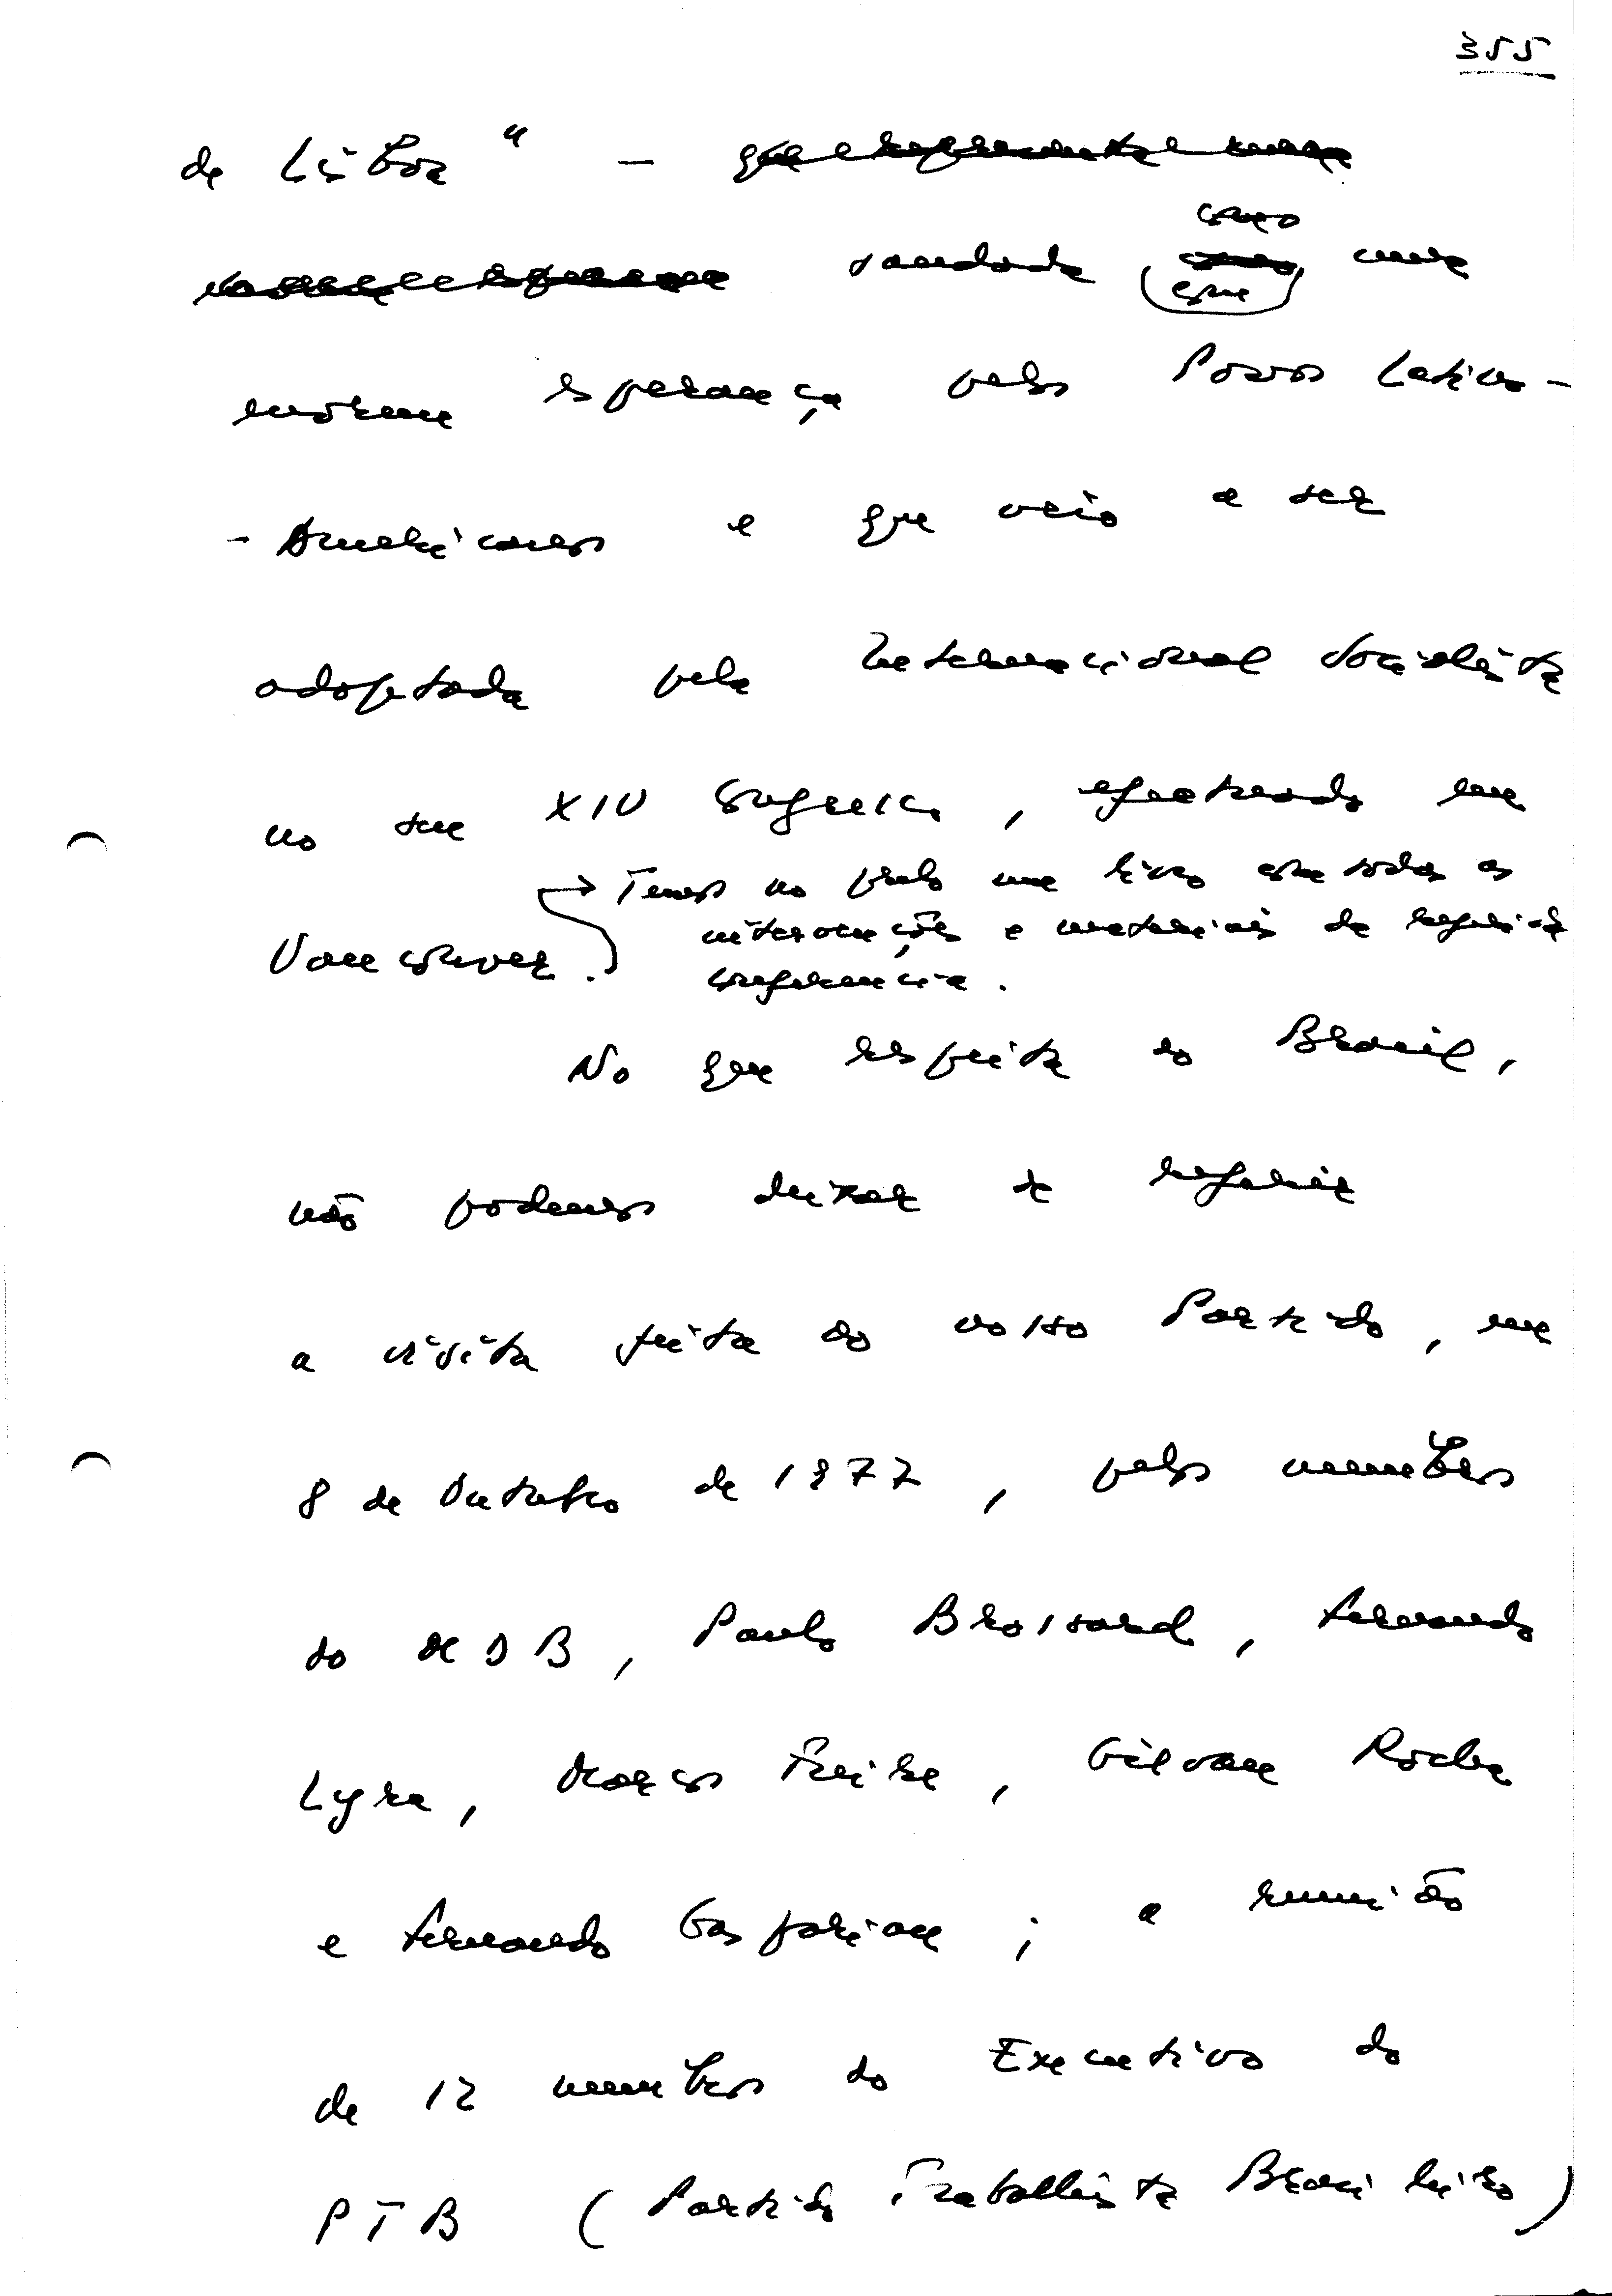 355
de Lisboa" -
saudada com uma
enorme esperança pelos Povos Latino-
- Americanos e que veio a ser
adoptada pela Internacional Socialista
no seu XIV Congresso, efectuado em
→ Temos no prelo um livro com todas as
intervenções e materiais da referida
Vancouver.
conferência.
No que respeita ao Brasil,
não podemos deixar de referir
a visita feita ao nosso Partido, em
8 de Outubro de 1977, pelos membros
do MDB, Paulo Brossard, Fernando
Lyra, Marcos Freire, Gilvan Rocha
e Fernando Gasparian; a reunião
de 12 membros do Executivo do
PTB (Partido Trabalhista Brasileiro)